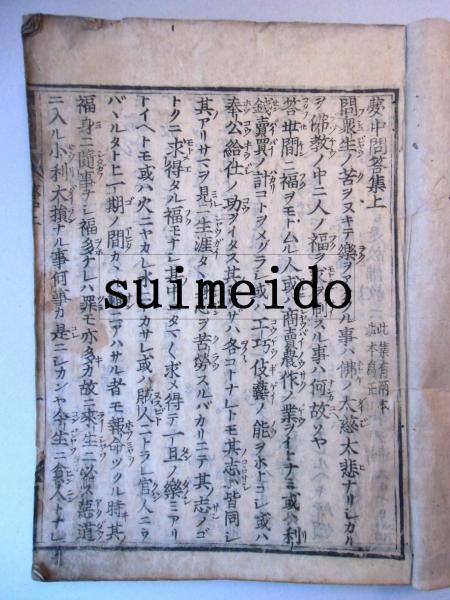 夢中問答集上
此集有兩本
此本為正
問衆生ノ苦ヲヌキテ樂ヲアタフル事ハ佛ノ大慈大悲ナリシカル
ヲ佛教ノ中ニ人ノ福ヲモトムルヲ制スル事ハ何故ソヤ
答世間ニ福ヲモトムル人或ハ商賣農作ノ業ヲイトナミ或ハ利
錢賣買ノ計コトヲメグラシ或ハ工巧伎藝ノ能ヲホトコシ或ハ
奉公給仕ノ功ヲイタス其シワザハ各コトナレトモ其志ハ皆同シ
其アリサマヲ見ニ一生涯タヽ心ヲ苦勞スルバカリニテ其ノ志ノゴ
トクニ求得タル福モナシ其中ニタマ〱求メ得テ一旦ノ樂ミアリ
トイヘトモ或ハ火ニヤカレ水ニナカサレ或ハ賊人ニトラレ官人ニヲ
バハルタトヒ一期ノ間カヽル災ニアハサル者モ報命ツクル時其
福身ニ隨事ナシ福多ナレハ罪モ亦多カ故ニ來生ニ必ス悪道
ニ入ル小利大損ナル事何事カ是ニシカンヤ今生ニ貧人トナレ
suimeido